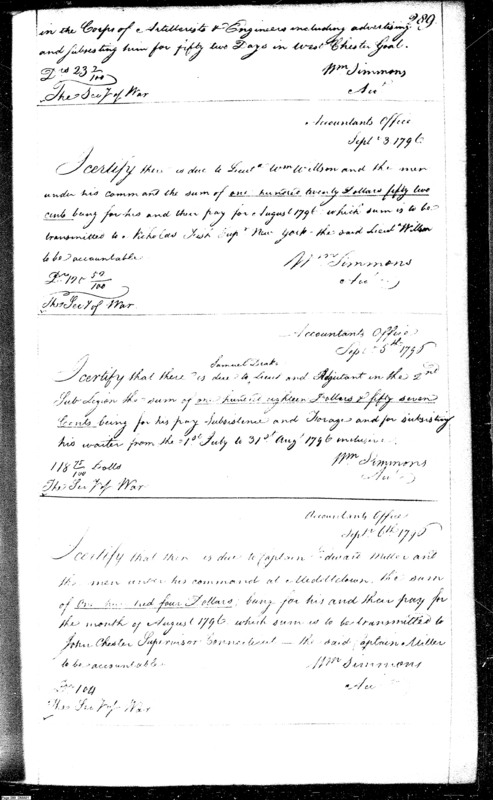 289
in the Corps of Artillerists & Engineers including advertising
and subsisting him for fifty two Days in West Chester Goal.
Drs 23 2/100
The Secy of War
Wm Simmons
Act
Accountants Office
Septr 3 1796
I certify there is due to Lieut Wm Willson and the men
under his command the sum of one hundred twenty Dollars fifty two
cents being for his and their pay for August 1796 which sum is to be
transmitted to Nicholas Fish Supr New York - the said Lieut Willson
to be accountable
Drs 120 52/100
The Secy of War
Wm Simmons
Act
Accountants Office
Sept 5th 1796
Samuel Drake
I certify that there is due to Lieut and Adjutant in the 2nd
Sub Legion the sum of one hundred eighteen Dollars & fifty seven
Cents, being for his pay Subsistence and Forage and for subsisting
his waiter from the 1st July to 31st Augt 1796 inclusive
118 75/100 Dolls
The Secy of War
Wm Simmons
Act
Accountants Office
Septr 6th 1796
I certify that there is due to Captain Edward Miller and
the men under his command at Middletown, the sum
of One hundred four Dollars; being for his and their pay for
the month of August 1796 which sum is to be transmitted to
John Chester Supervisor Connecticut - the said Captain Miller
to be accountable
Drs 104
The Secy of War
Wm Simmons
Act